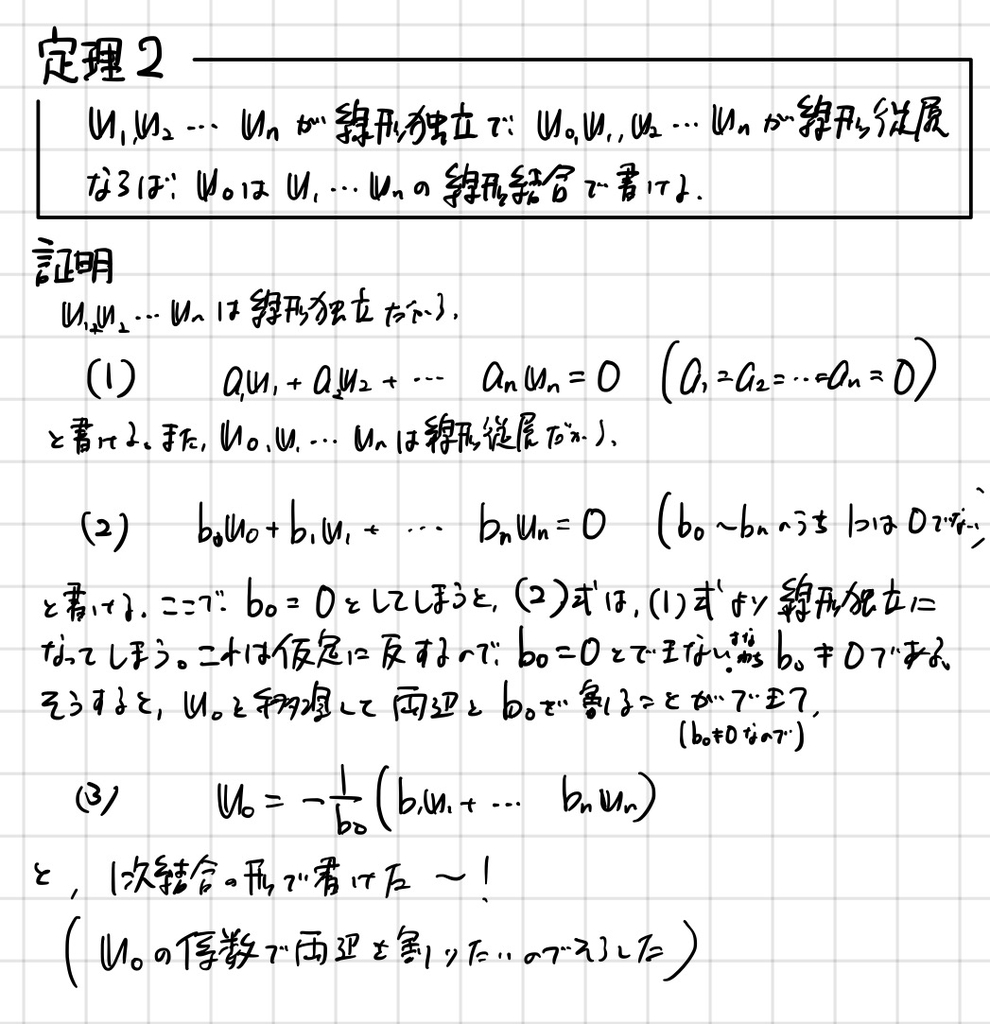 定理2
u₁,u₂ … uₙ が 線形独立で、u₀,u₁,u₂ … uₙ が線形従属
ならば、u₀は u₁ … uₙの 線形結合で書ける.
証明
u₁,u₂ … uₙ は 線形独立だから、
(1) a₁u₁ + a₂u₂ + … aₙuₙ = 0 (a₁=a₂=…=aₙ=0)
と書ける。また, u₀,u₁ … uₙは線形従属だから、
(2) b₀u₀ + b₁u₁ + … bₙuₙ = 0 (b₀~bₙのうち1つは0でない)
と書ける. ここで、b₀ = 0 としてしまうと, (2)式は, (1)式より 線形独立に
なってしまう。これは仮定に反するので、b₀=0とできないすなわちb₀≠0である。
そうすると, u₀を移項して 両辺を b₀で割ることができて,
(b₀≠0なので)
(3) u₀ = -1/b₀ (b₁u₁ + … bₙuₙ)
と, 1次結合の形で書けた 〜!
(u₀の係数で両辺を割りたいのでそうした)